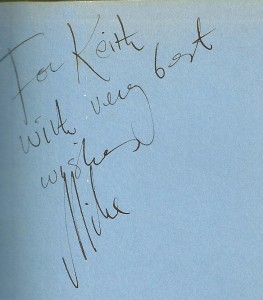 For Keith
with very best
wishes
Mike